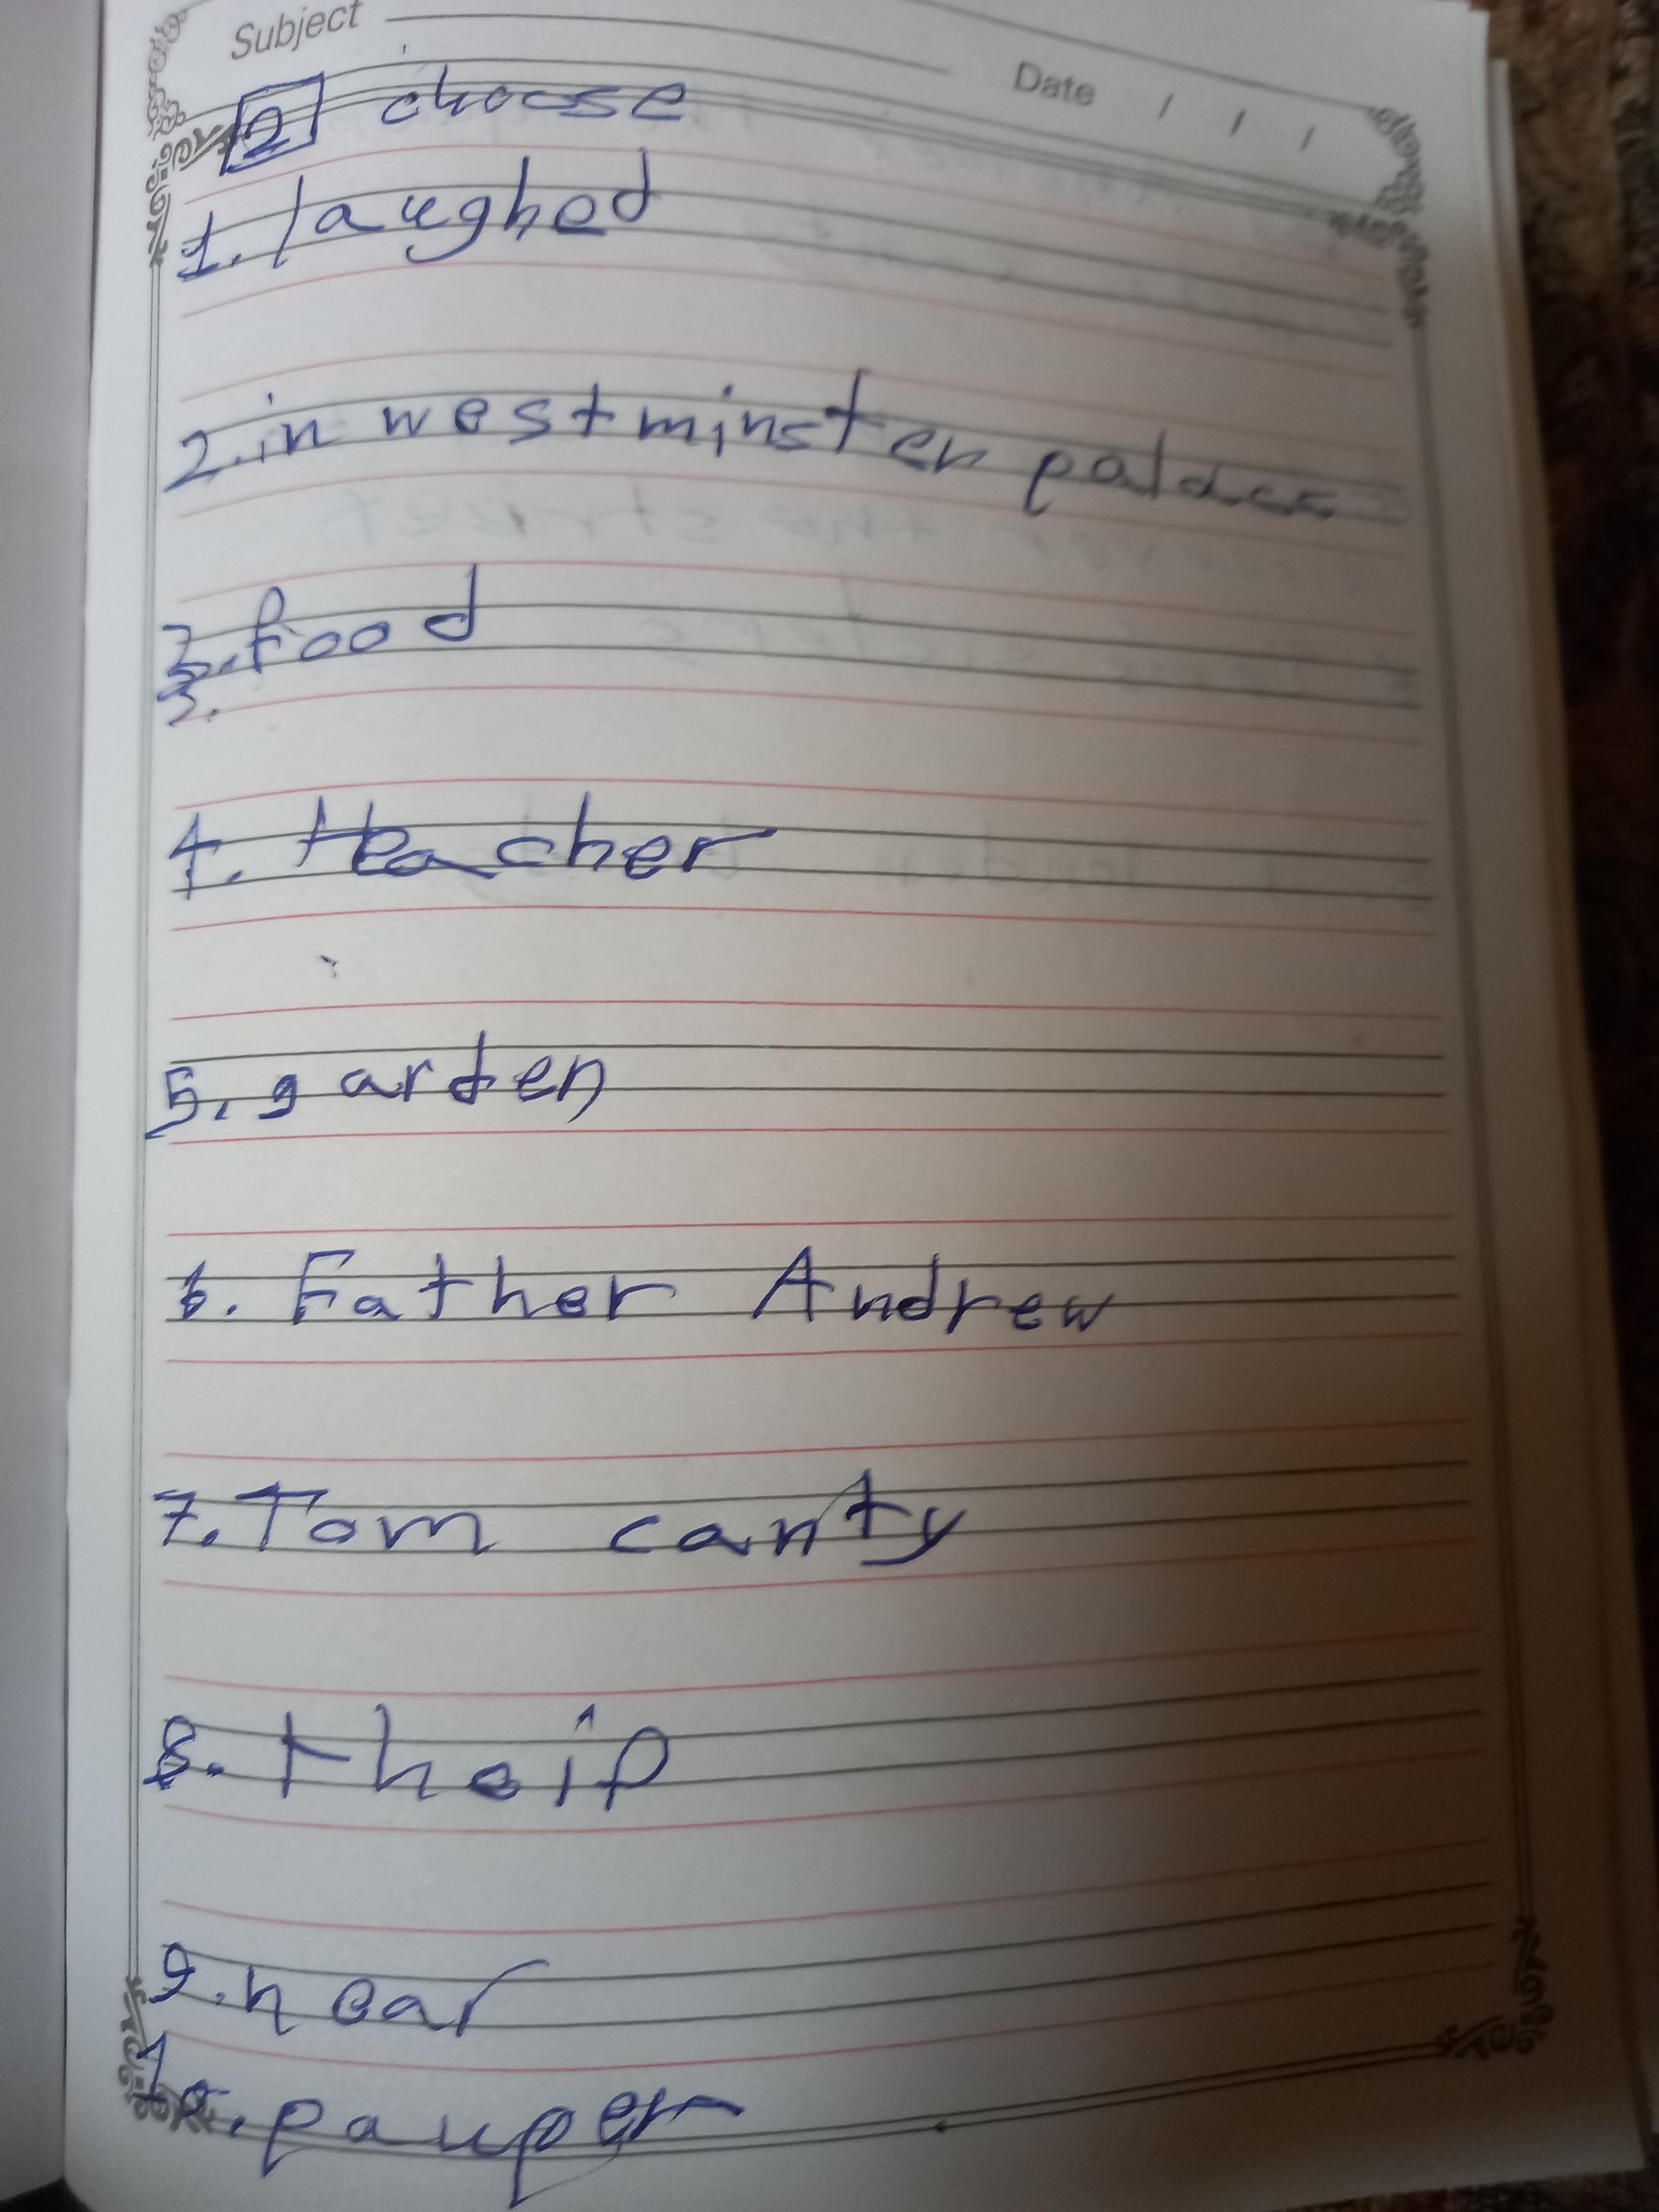 Subject
Date / / /
2 choose
1. laughed
2. in westminster palace
3. food
3.
4. teacher
5. garden
6. Father Andrew
7. Tom canty
8. their
9. near
10. pauper